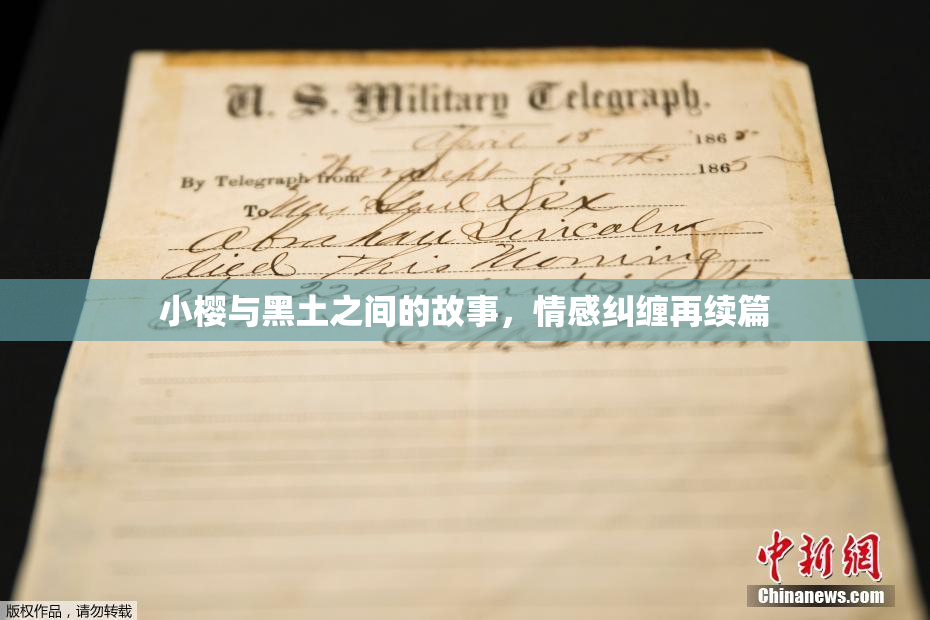 U. S. Military Telegraph.
April 15 1865
By Telegraph from War Dept 15th 1865
To Maj Genl Dix
Abraham Lincoln
died This Morning
at 22 minutes after
小樱与黑土之间的故事，情感纠缠再续篇
E. M. Stanton
中新网
Chinanews.com
版权作品，请勿转载